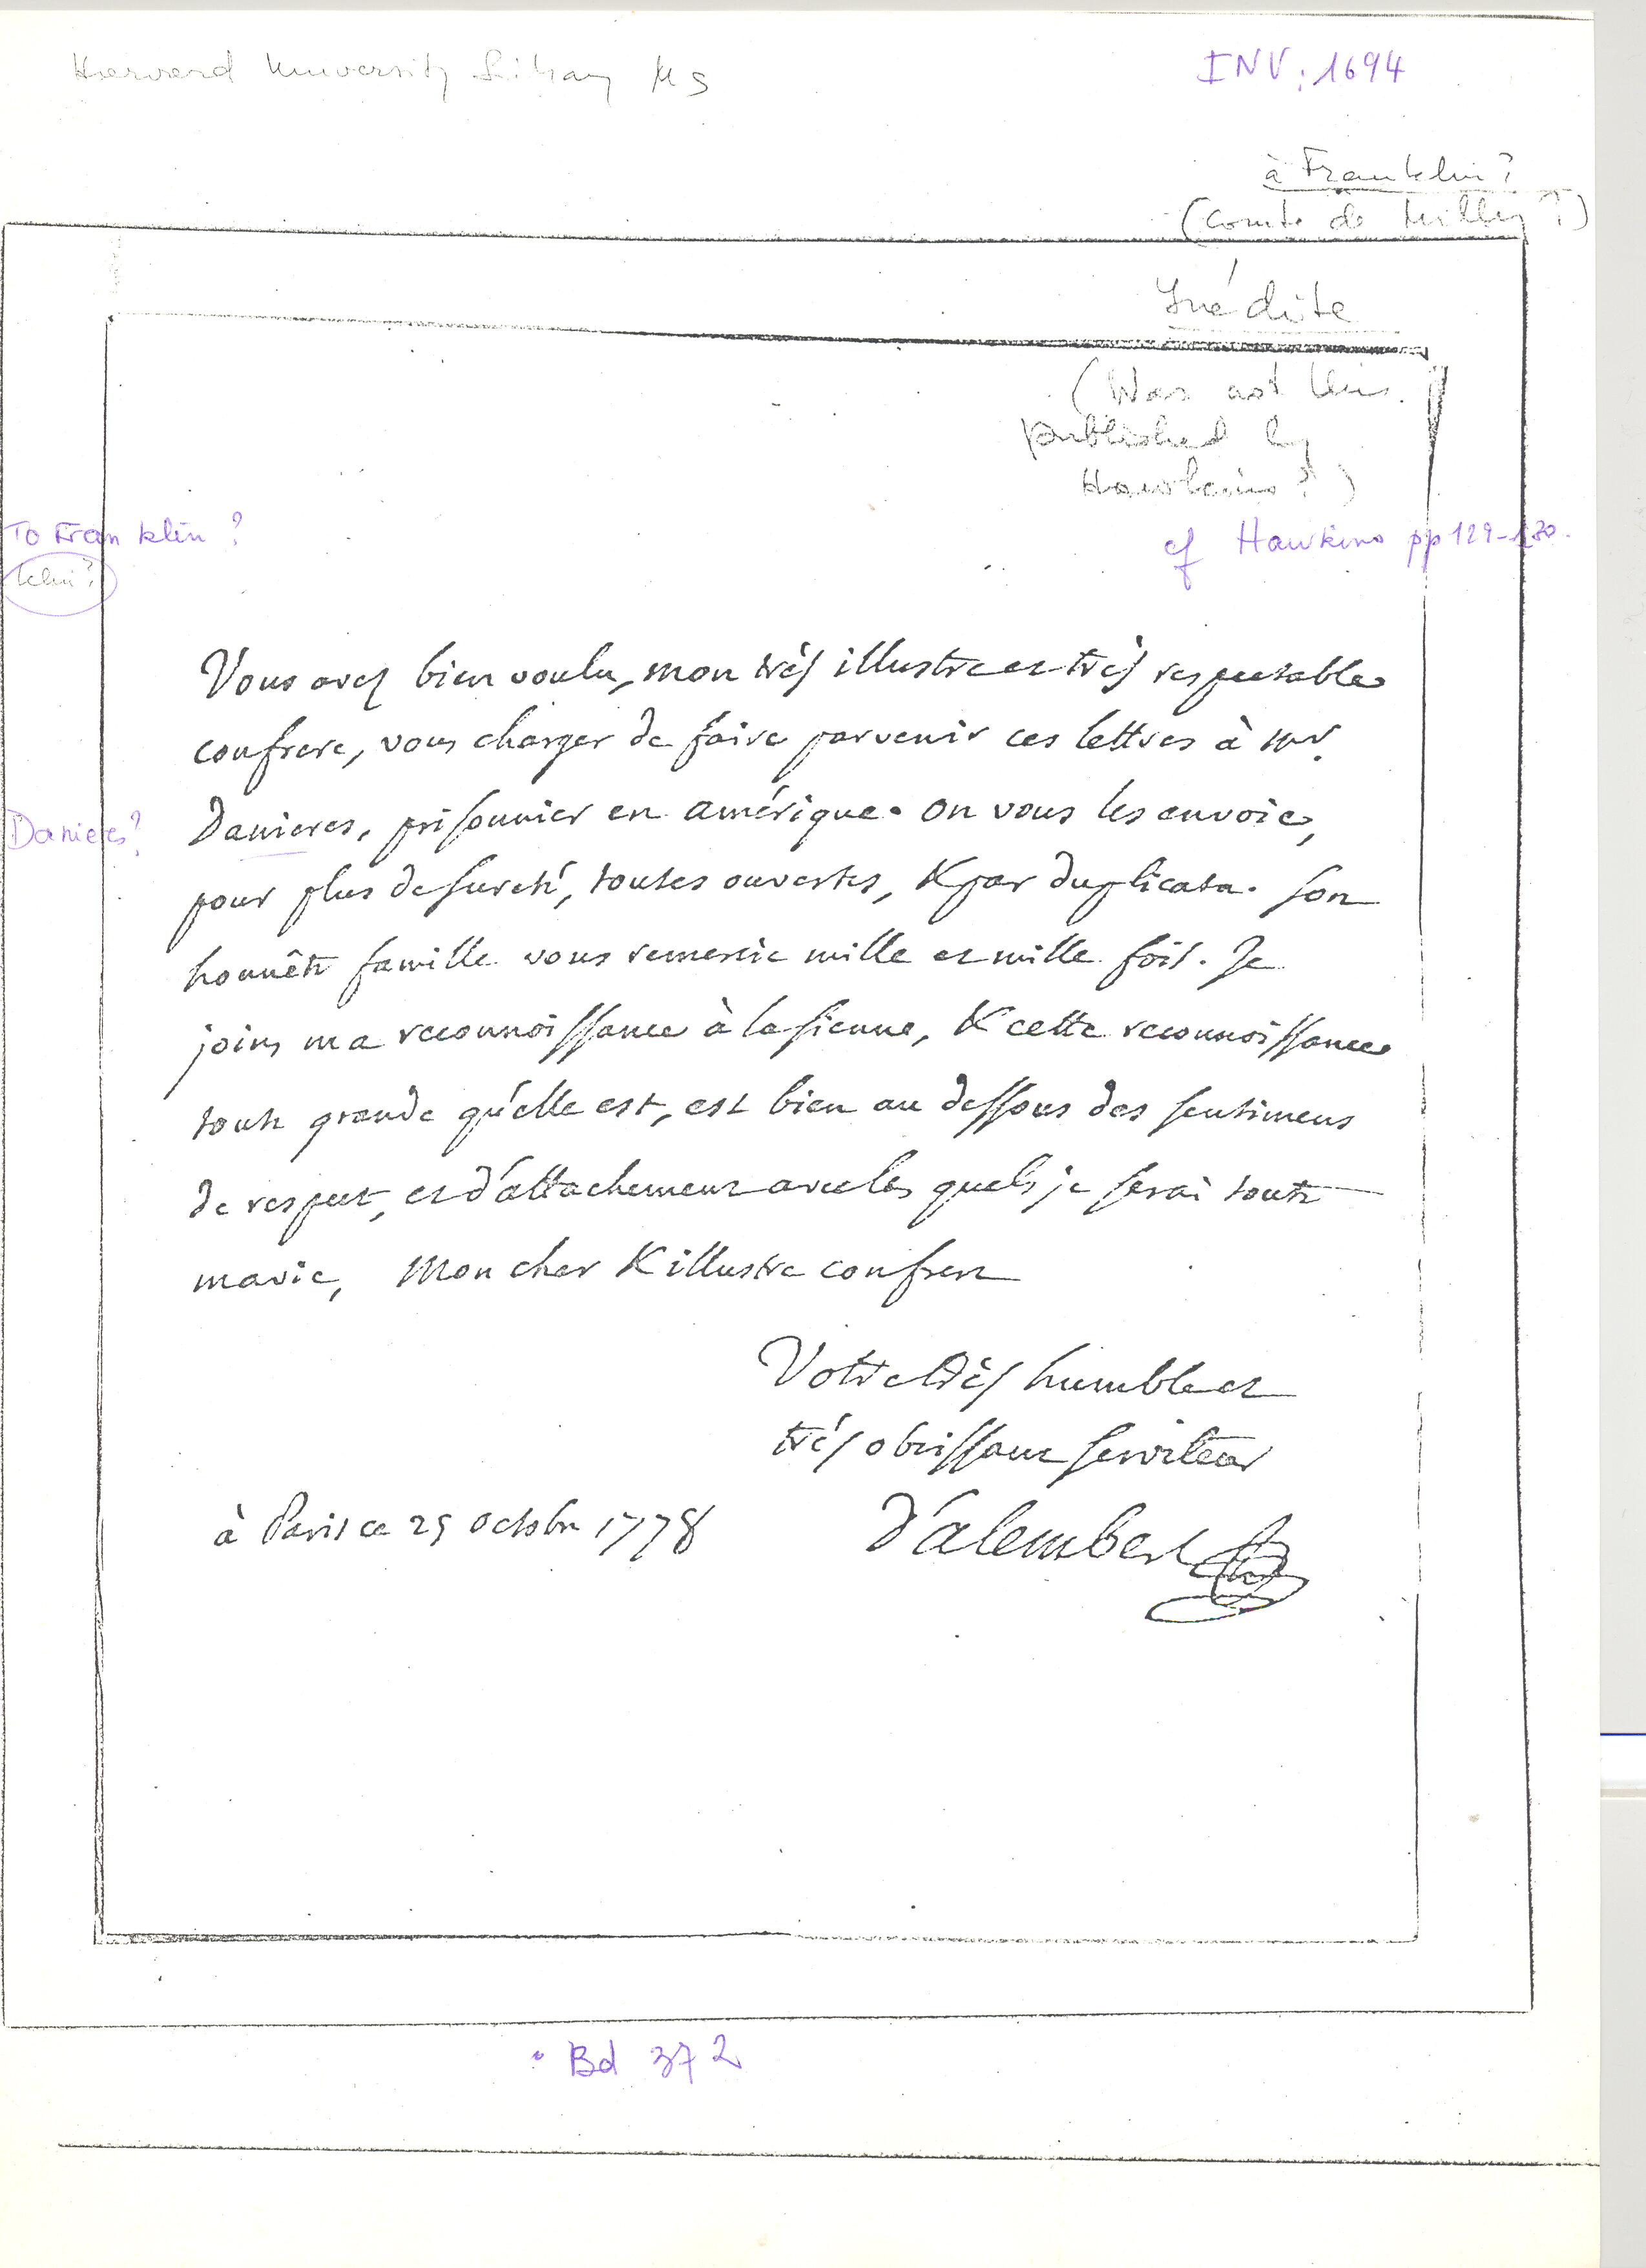 Harvard University Library MS
INV: 1694
à Franklin?
(Comte de Milly?)
Inédite
(Was not this
published by
Hawkins?)
To Franklin?
cf Hawkins pp 129-130.
klin?
Vous avez bien voulu, mon très illustre et très respectable
confrere, vous charger de faire parvenir ces lettres à Mr.
Danieres, prisonnier en amérique. on vous les envoie,
Danieres?
pour plus de sureté, toutes ouvertes, & par duplicata. son
honnête famille vous remercie mille et mille fois. Je
joins ma reconnoissance à la sienne, & cette reconnoissance
toute grande qu'elle est, est bien au dessous des sentimens
de respect, et d'attachement avec les quels je serai toute
ma vie, Mon cher & illustre confrere
Votre très humble et
très obeissant serviteur
à Paris ce 29 octobre 1778
D'alembert
Bd 372